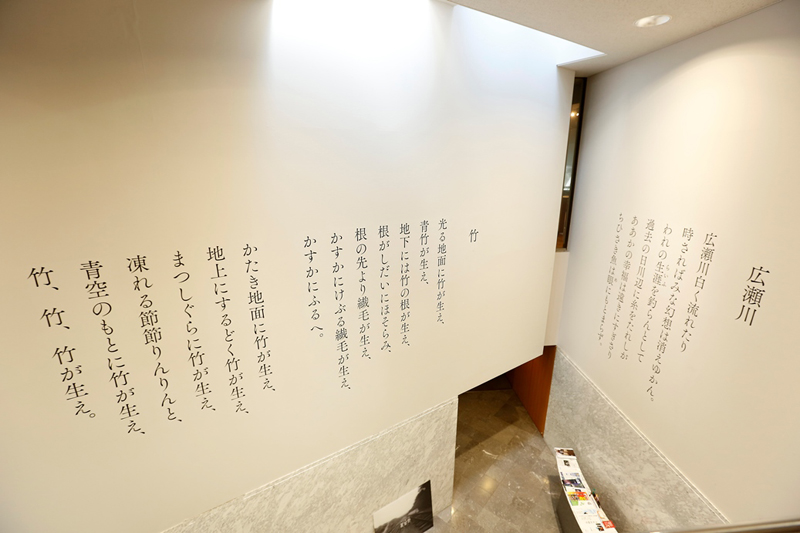 広瀬川
広瀬川白く流れたり
時さればみな幻想は消えゆかん。
われの生涯を釣らんとして
過去の日川辺に糸をたれしが
ああかの幸福は遠きにすぎさり
ちひさき魚は眼にもとまらず。
竹
光る地面に竹が生え、
青竹が生え、
地下には竹の根が生え、
根がしだいにほそらみ、
根の先より繊毛が生え、
かすかにけぶる繊毛が生え、
かすかにふるへ。
かたき地面に竹が生え、
地上にするどく竹が生え、
まつしぐらに竹が生え、
凍れる節節りんりんと、
青空のもとに竹が生え、
竹、竹、竹が生え。